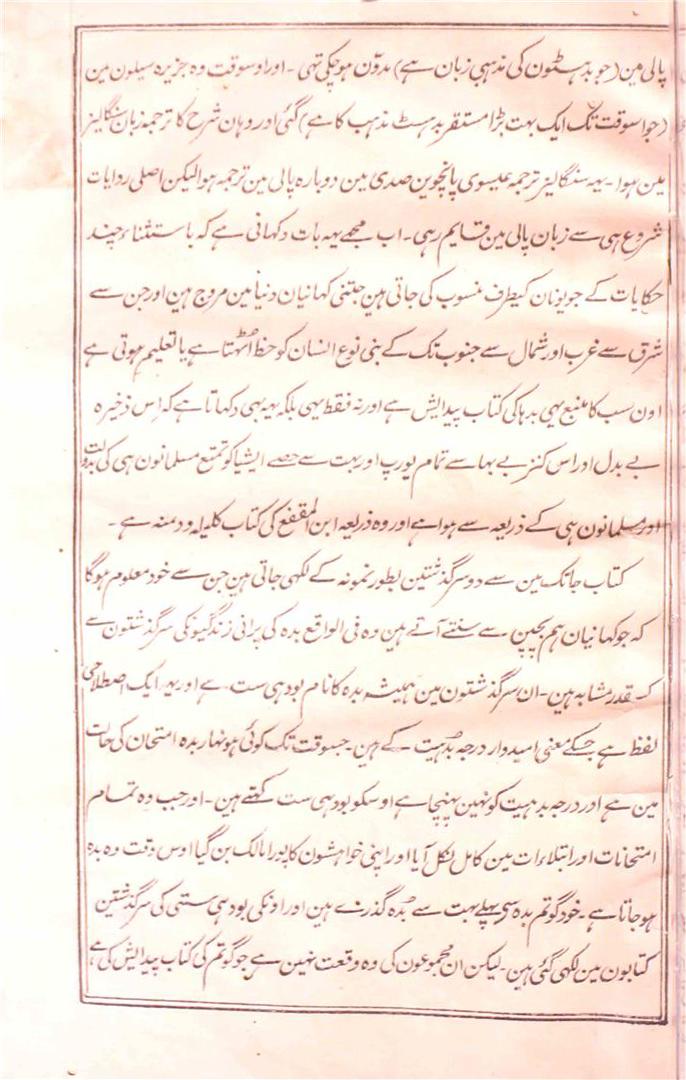 پالی مین (جو بدہسٹون کی مذہبی زبان ہے) مدوّن ہوچکی تہی ۔ اور اوسوقت وہ جزیرہ سیلون مین
(جو اسوقت تک ایک بہت بڑا مستقر بدہسٹ مذہب کا ہے) گئی اور وہان شرح کا ترجمہ زبان سنگالیز
مین ہوا ۔ یہہ سنگالیز ترجمہ عیسوی پانچوین صدی مین دوبارہ پالی مین ترجمہ ہوا لیکن اصلی روایات
شروع ہی سے زبان پالی مین قایم رہی ۔ اب مجھے یہہ بات دکہانی ہے کہ باستثناء چند
حکایات کے جو یونان کیطرف منسوب کی جاتی ہین جتنی کہانیان دنیا مین مروج ہین اور جن سے
شرق سے غرب اور شمال سے جنوب تک کے بنی نوع انسان کو حظ اُٹہتا ہے یا تعلیم ہوتی ہے
اون سب کا منبع یہی بدہا کی کتاب پیدایش ہے اور نہ فقط یہی بلکہ یہہ بہی دکہاتا ہے کہ اِس ذخیرہ
بے بدل اور اس کنز بے بہا سے تمام یورپ اور بہت سے حصے ایشیا کو تمتع مسلمانون ہی کی بدولت
اور مسلمانون ہی کے ذریعہ سے ہوا ہے اور وہ ذریعہ ابن المقفع کی کتاب کلیلہ و دمنہ ہے ۔
کتاب جاتک مین سے دو سرگذشتین بطور نمونہ کے لکہی جاتی ہین جن سے خود معلوم ہوگا
کہ جو کہانیان ہم بچپن سے سنتے آتے ہین وہ فی الواقع بدہ کی پرانی زندگیونکی سرگذشتون سے
کسقدر مشابہ ہین ۔ ان سرگذشتون مین ہمیشہ بدہ کا نام بودہی ست ہے اور یہہ ایک اصطلاحی
لفظ ہے جسکے معنی امیدوار درجہ بدہیت کے ہین ۔ جسوقت تک کوئی ہونہار بدہ امتحان کی حالت
مین ہے اور درجہ بدہیت کو نہین پہنچا ہے اوسکو بودہی ست کہتے ہین ۔ اور جب وہ تمام
امتحانات اور ابتلاءات مین کامل نکل آیا اور اپنی خواہشون کا پورا مالک بن گیا اوس وقت وہ بدہ
ہوجاتا ہے ۔ خود گوتم بدہ سے پہلے بہت سے بدہ گذرے ہین اور اونکی بودہی ستی کی سرگذشتین
کتابون مین لکہی گئی ہین ۔ لیکن ان مجموعون کی وہ وقعت نہین ہے جو گوتم کی کتاب پیدایش کی ہے